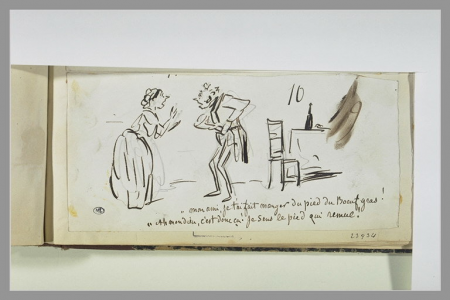 10
„ mon ami, je t'ai fait manger du pied du Boeuf gras !
„ Ah mon dieu, c'est donc ça ! je sens le pied qui remue !
23934